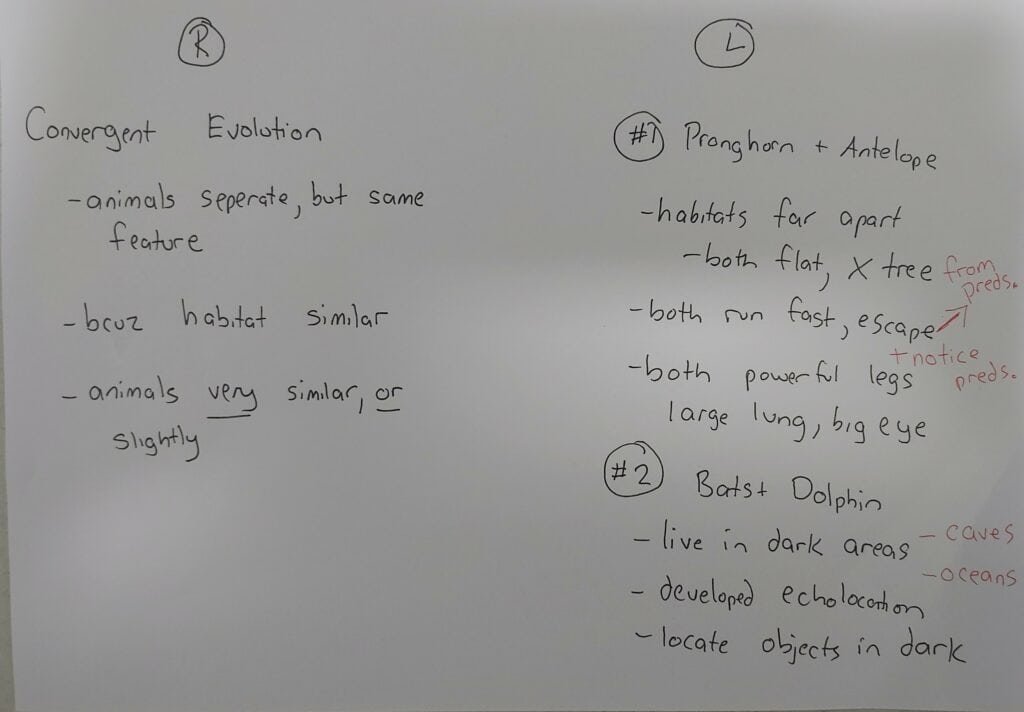 R
Convergent Evolution
- animals seperate, but same
feature
- bcuz habitat similar
- animals very similar, or
slightly
L
#1 Pronghorn + Antelope
- habitats far apart
- both flat, X tree from
preds.
- both run fast, escape
+ notice
preds.
- both powerful legs
large lung, big eye
#2 Bats + Dolphin
- live in dark areas - caves
- oceans
- developed echolocation
- locate objects in dark